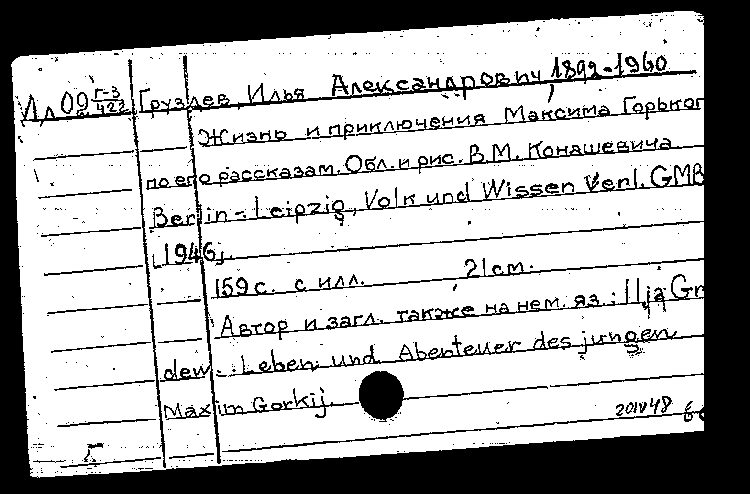 Ил 09 Г-3/422 Груздев, Илья Александрович, 1892-1960
Жизнь и приключения Максима Горьког
по его рассказам. Обл. и рис. В.М. Конашевича
Berlin - Leipzig, Volk und Wissen Verl. GMB
[1946].
159 с. с илл. 21 см.
Автор и загл. также на нем. яз.: Ilja Gru
dew. Leben und Abenteuer des jungen
Maxim Gorkij.
201V48
Г